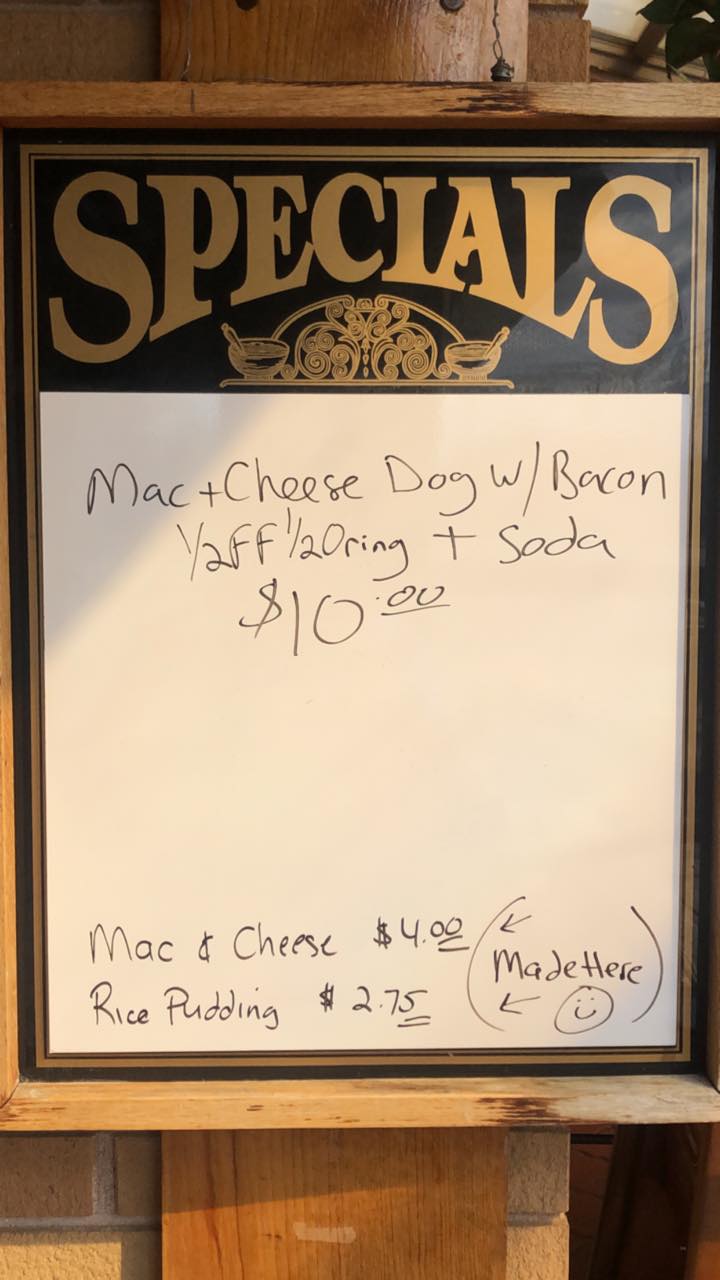 SPECIALS
Mac + Cheese Dog w/ Bacon
1/2 FF 1/2 Oring + Soda
$10.00
Mac & Cheese $4.00
Rice Pudding $2.75
(← Made Here ← ☺)